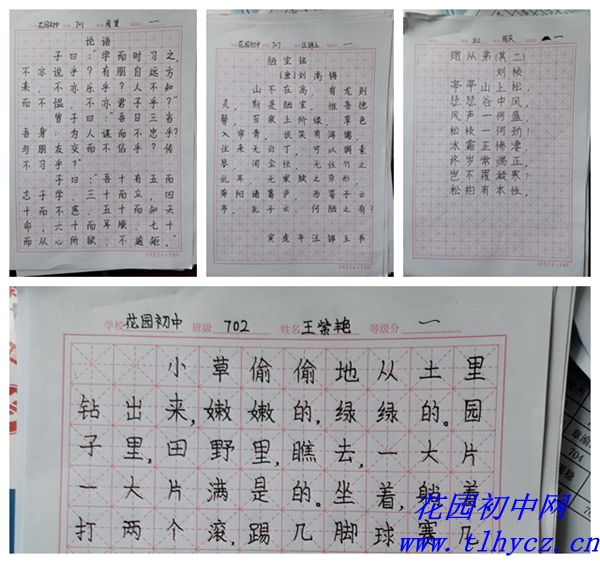 花园初中 701 一
论语
子曰:“学而时习之,
不亦说乎?有朋自远方
来,不亦乐乎?人不知
而不愠,不亦君子乎?”
曾子曰:“吾日三省
吾身:为人谋而不忠乎?
与朋友交而不信乎?传
不习乎?”
子曰:“吾十有五而
志于学,三十而立,四
十而不惑,五十而知天
命,六十而耳顺,七十
而从心所欲,不逾矩。”
花园初中 701 汪锦玉 一
陋室铭
[唐]刘禹锡
山不在高,有龙则
灵,斯是陋室,惟吾德
馨,苔痕上阶绿,草色
入帘青,谈笑有鸿儒,
往来无白丁,可以调素
琴,阅金经,无丝竹之
乱耳,无案牍之劳形,
南阳诸葛庐,西蜀子云
亭,孔子云:何陋之有?
寅虎年汪锦玉书
一
赠从弟(其二)
刘桢
亭亭山上松,
瑟瑟谷中风,
风声一何盛,
松枝一何劲!
冰霜正惨凄,
终岁常端正,
岂不罹凝寒?
松柏有本性。
学校 花园初中 班级 702 姓名 王紫艳 等级分 一
小草偷偷地从土里
钻出来,嫩嫩的,绿绿的。园
子里,田野里,瞧去,一大片
一大片满是的。坐着,躺着
打两个滚,踢几脚球,赛几
花园初中网
www.tlhycz.cn